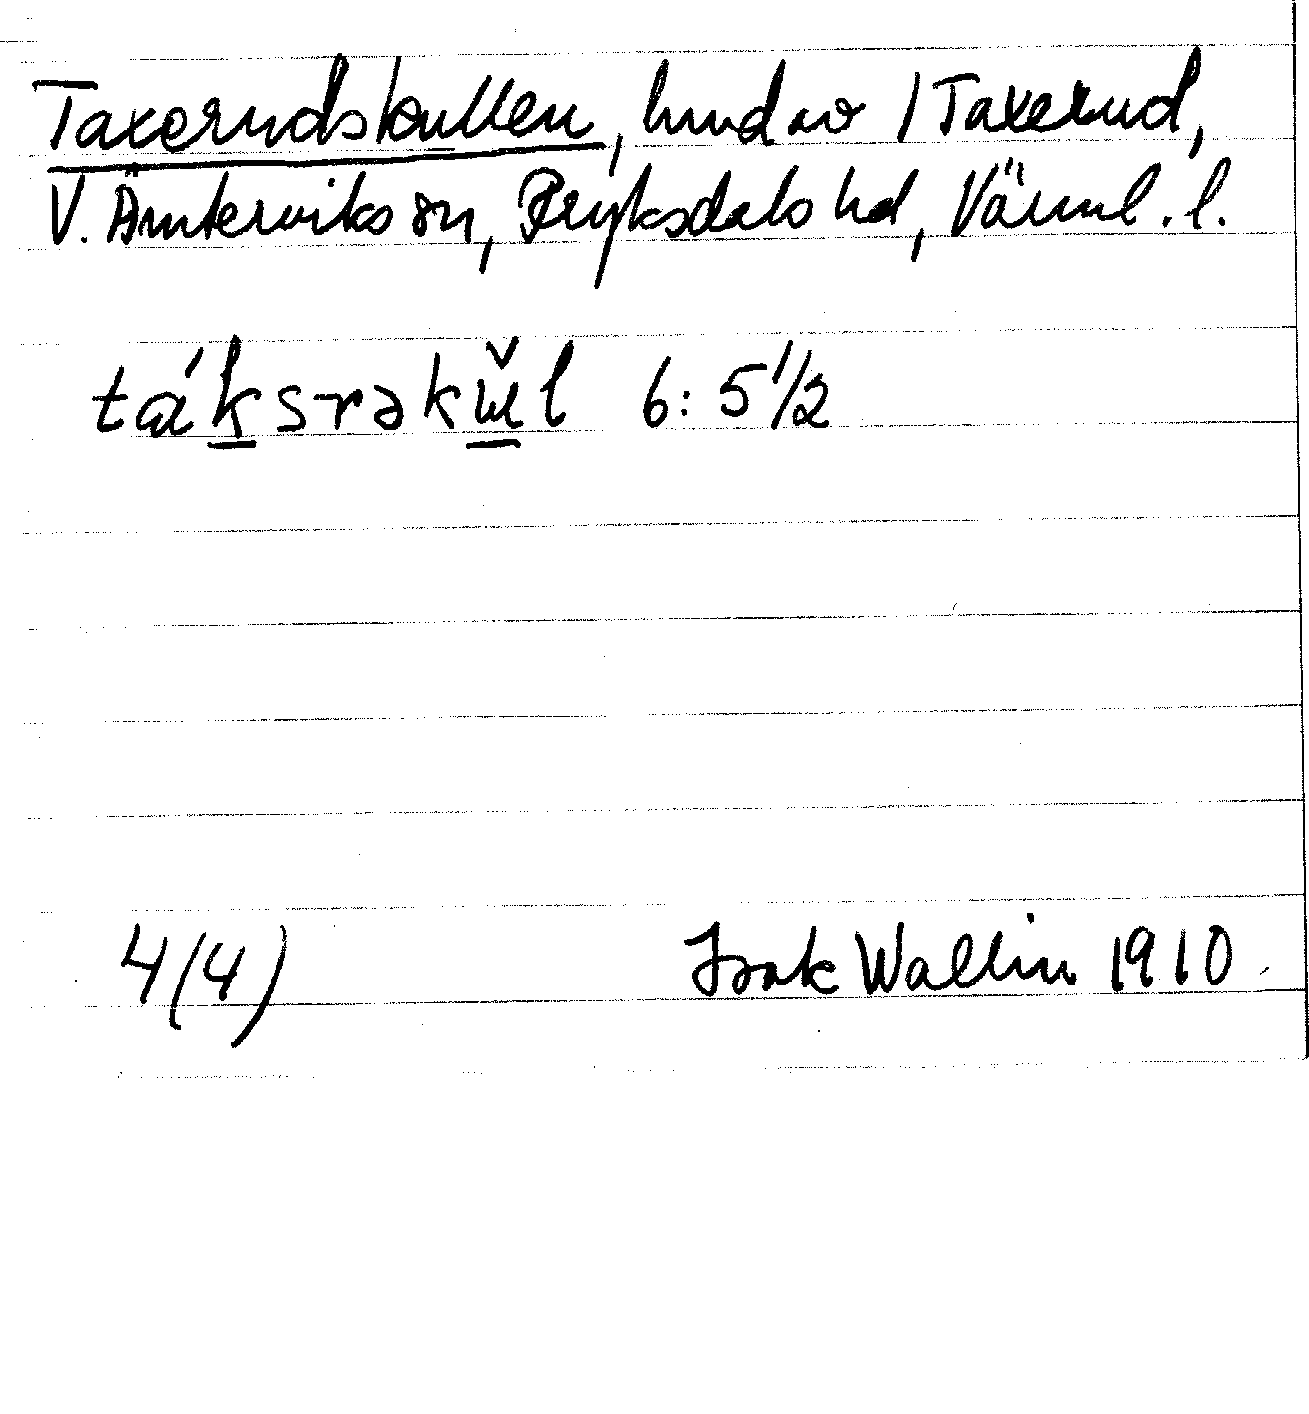 Taxerudskullen, hmd av 1 Taxerud,
V. Ämterviks sn, Fryksdals hd, Värml. l.
táksrəkŭl 6: 5 1/2
4(4) Isak Wallin 1910